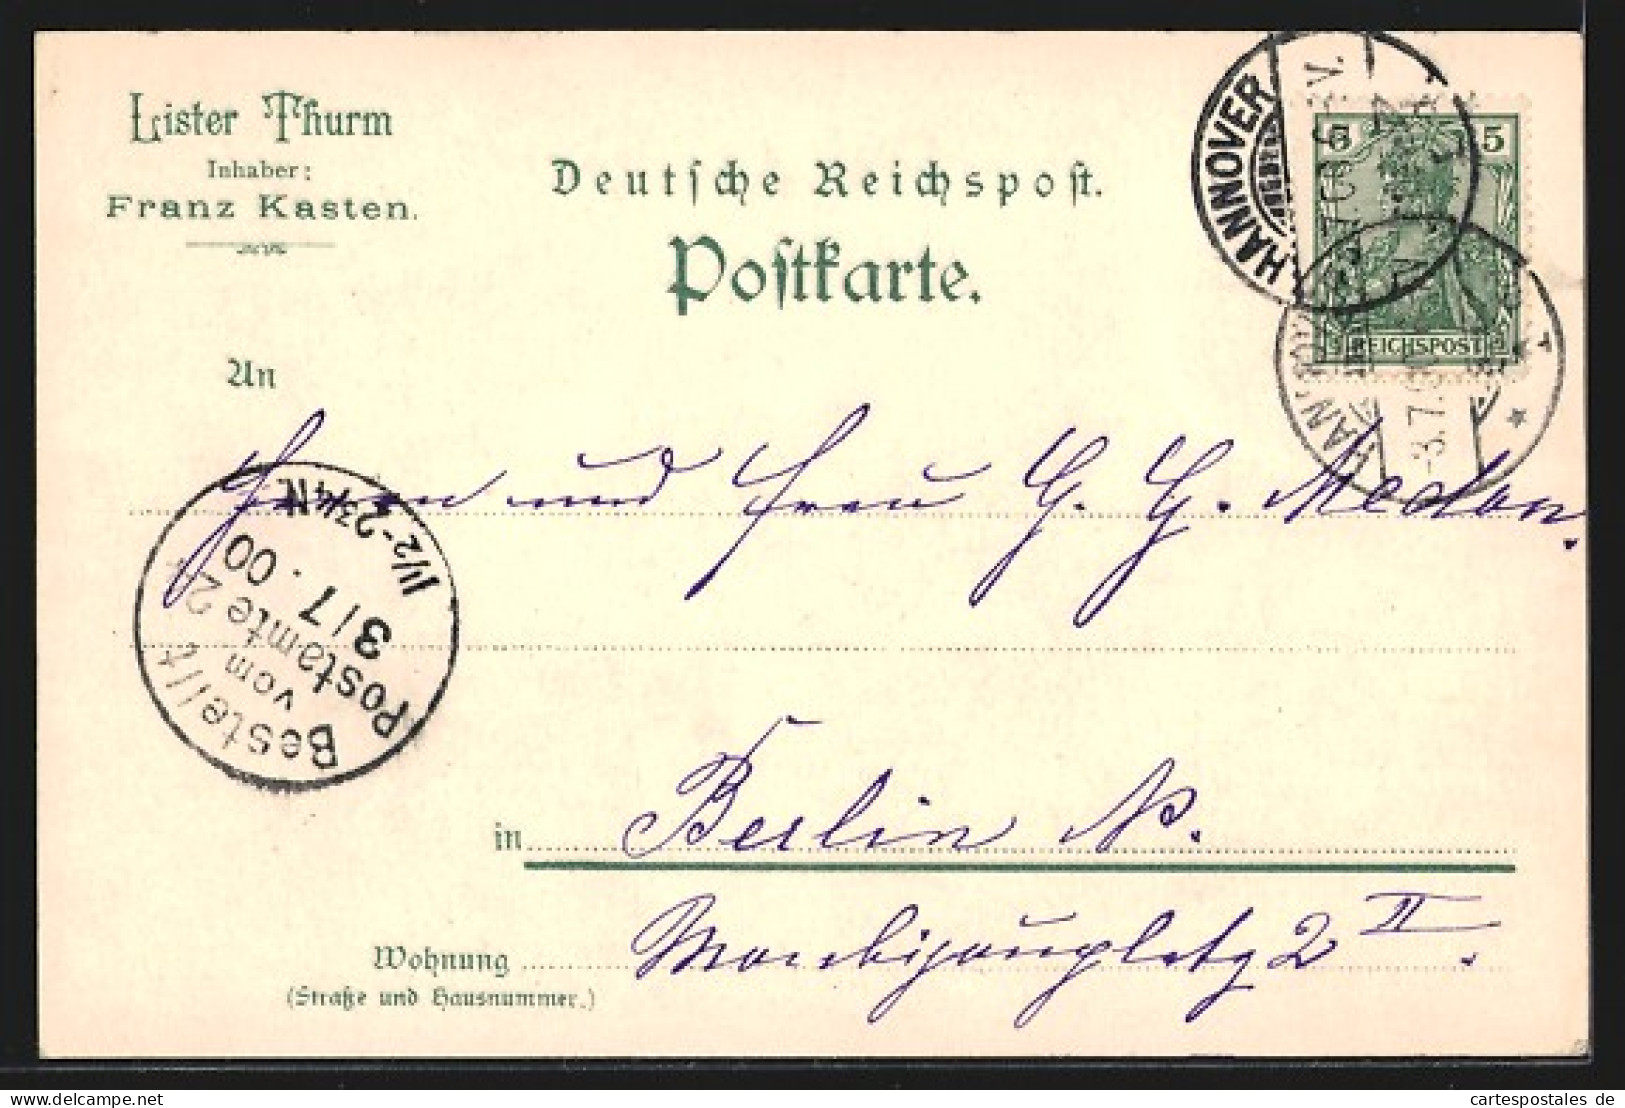 Lister Thurm
Inhaber:
Franz Kasten.
Deutsche Reichspost.
Postkarte.
HANNOVER
5 5
REICHSPOST
-3.7.
An
Herrn und Frau G. G. Medon.
Bestellt
vom
Postamte 24
3/7.00
1½-2¾N
in Berlin N.
Monbijouplatz 2 II.
Wohnung
(Straße und Hausnummer.)
www.cartespostales.eu
cartespostales de